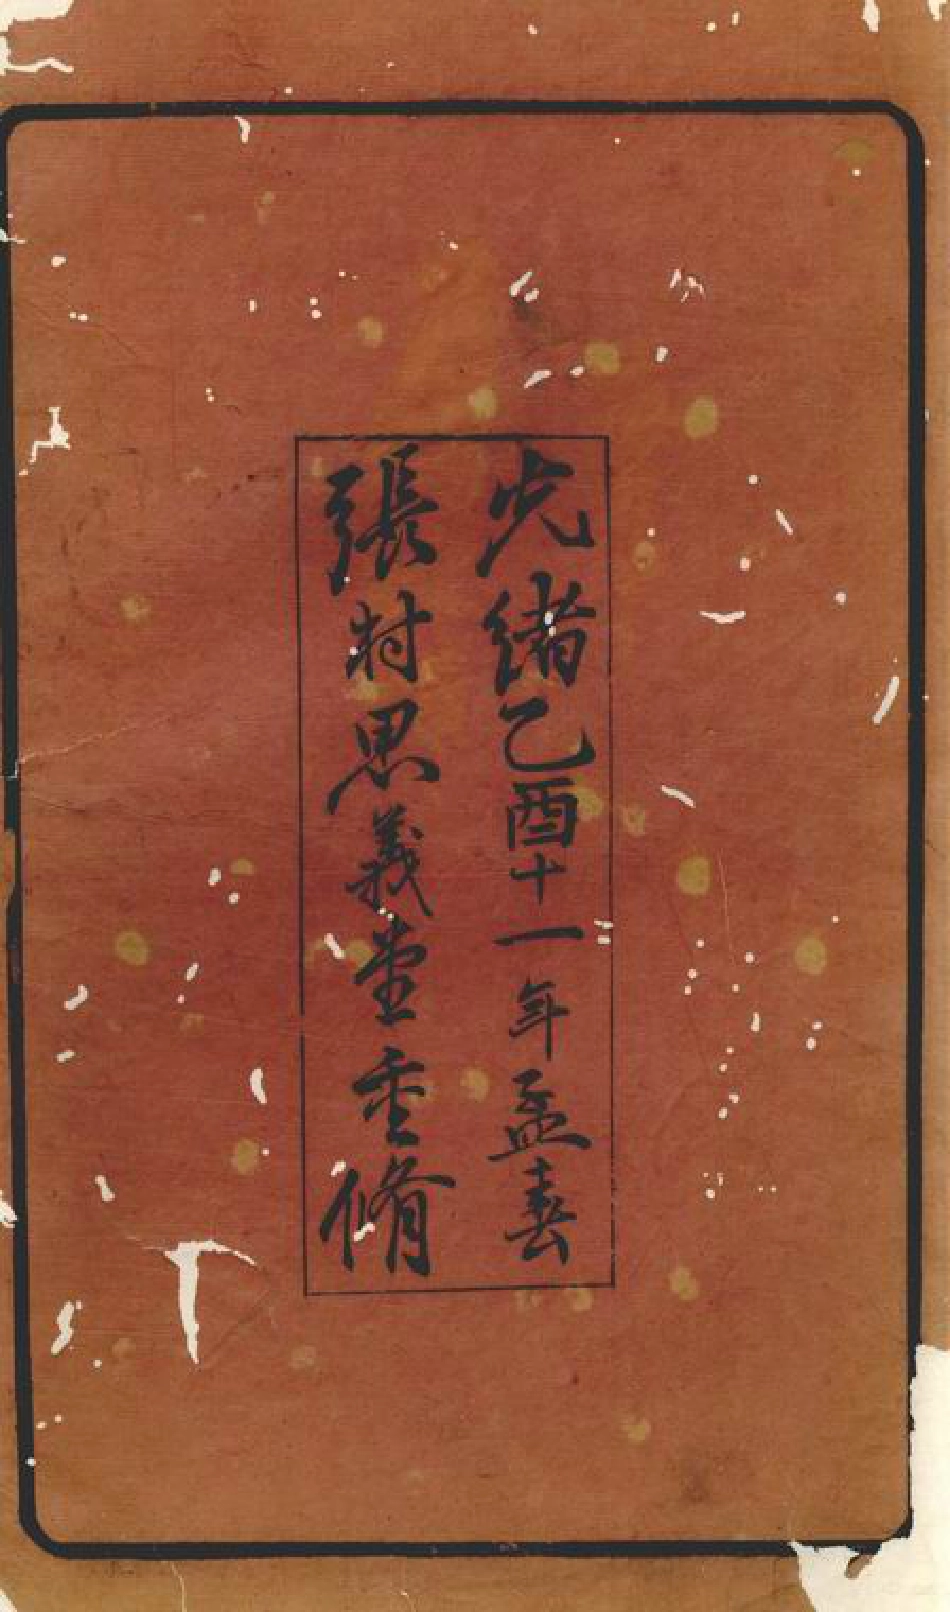 光緒乙酉十一年孟春
張村思義堂重脩